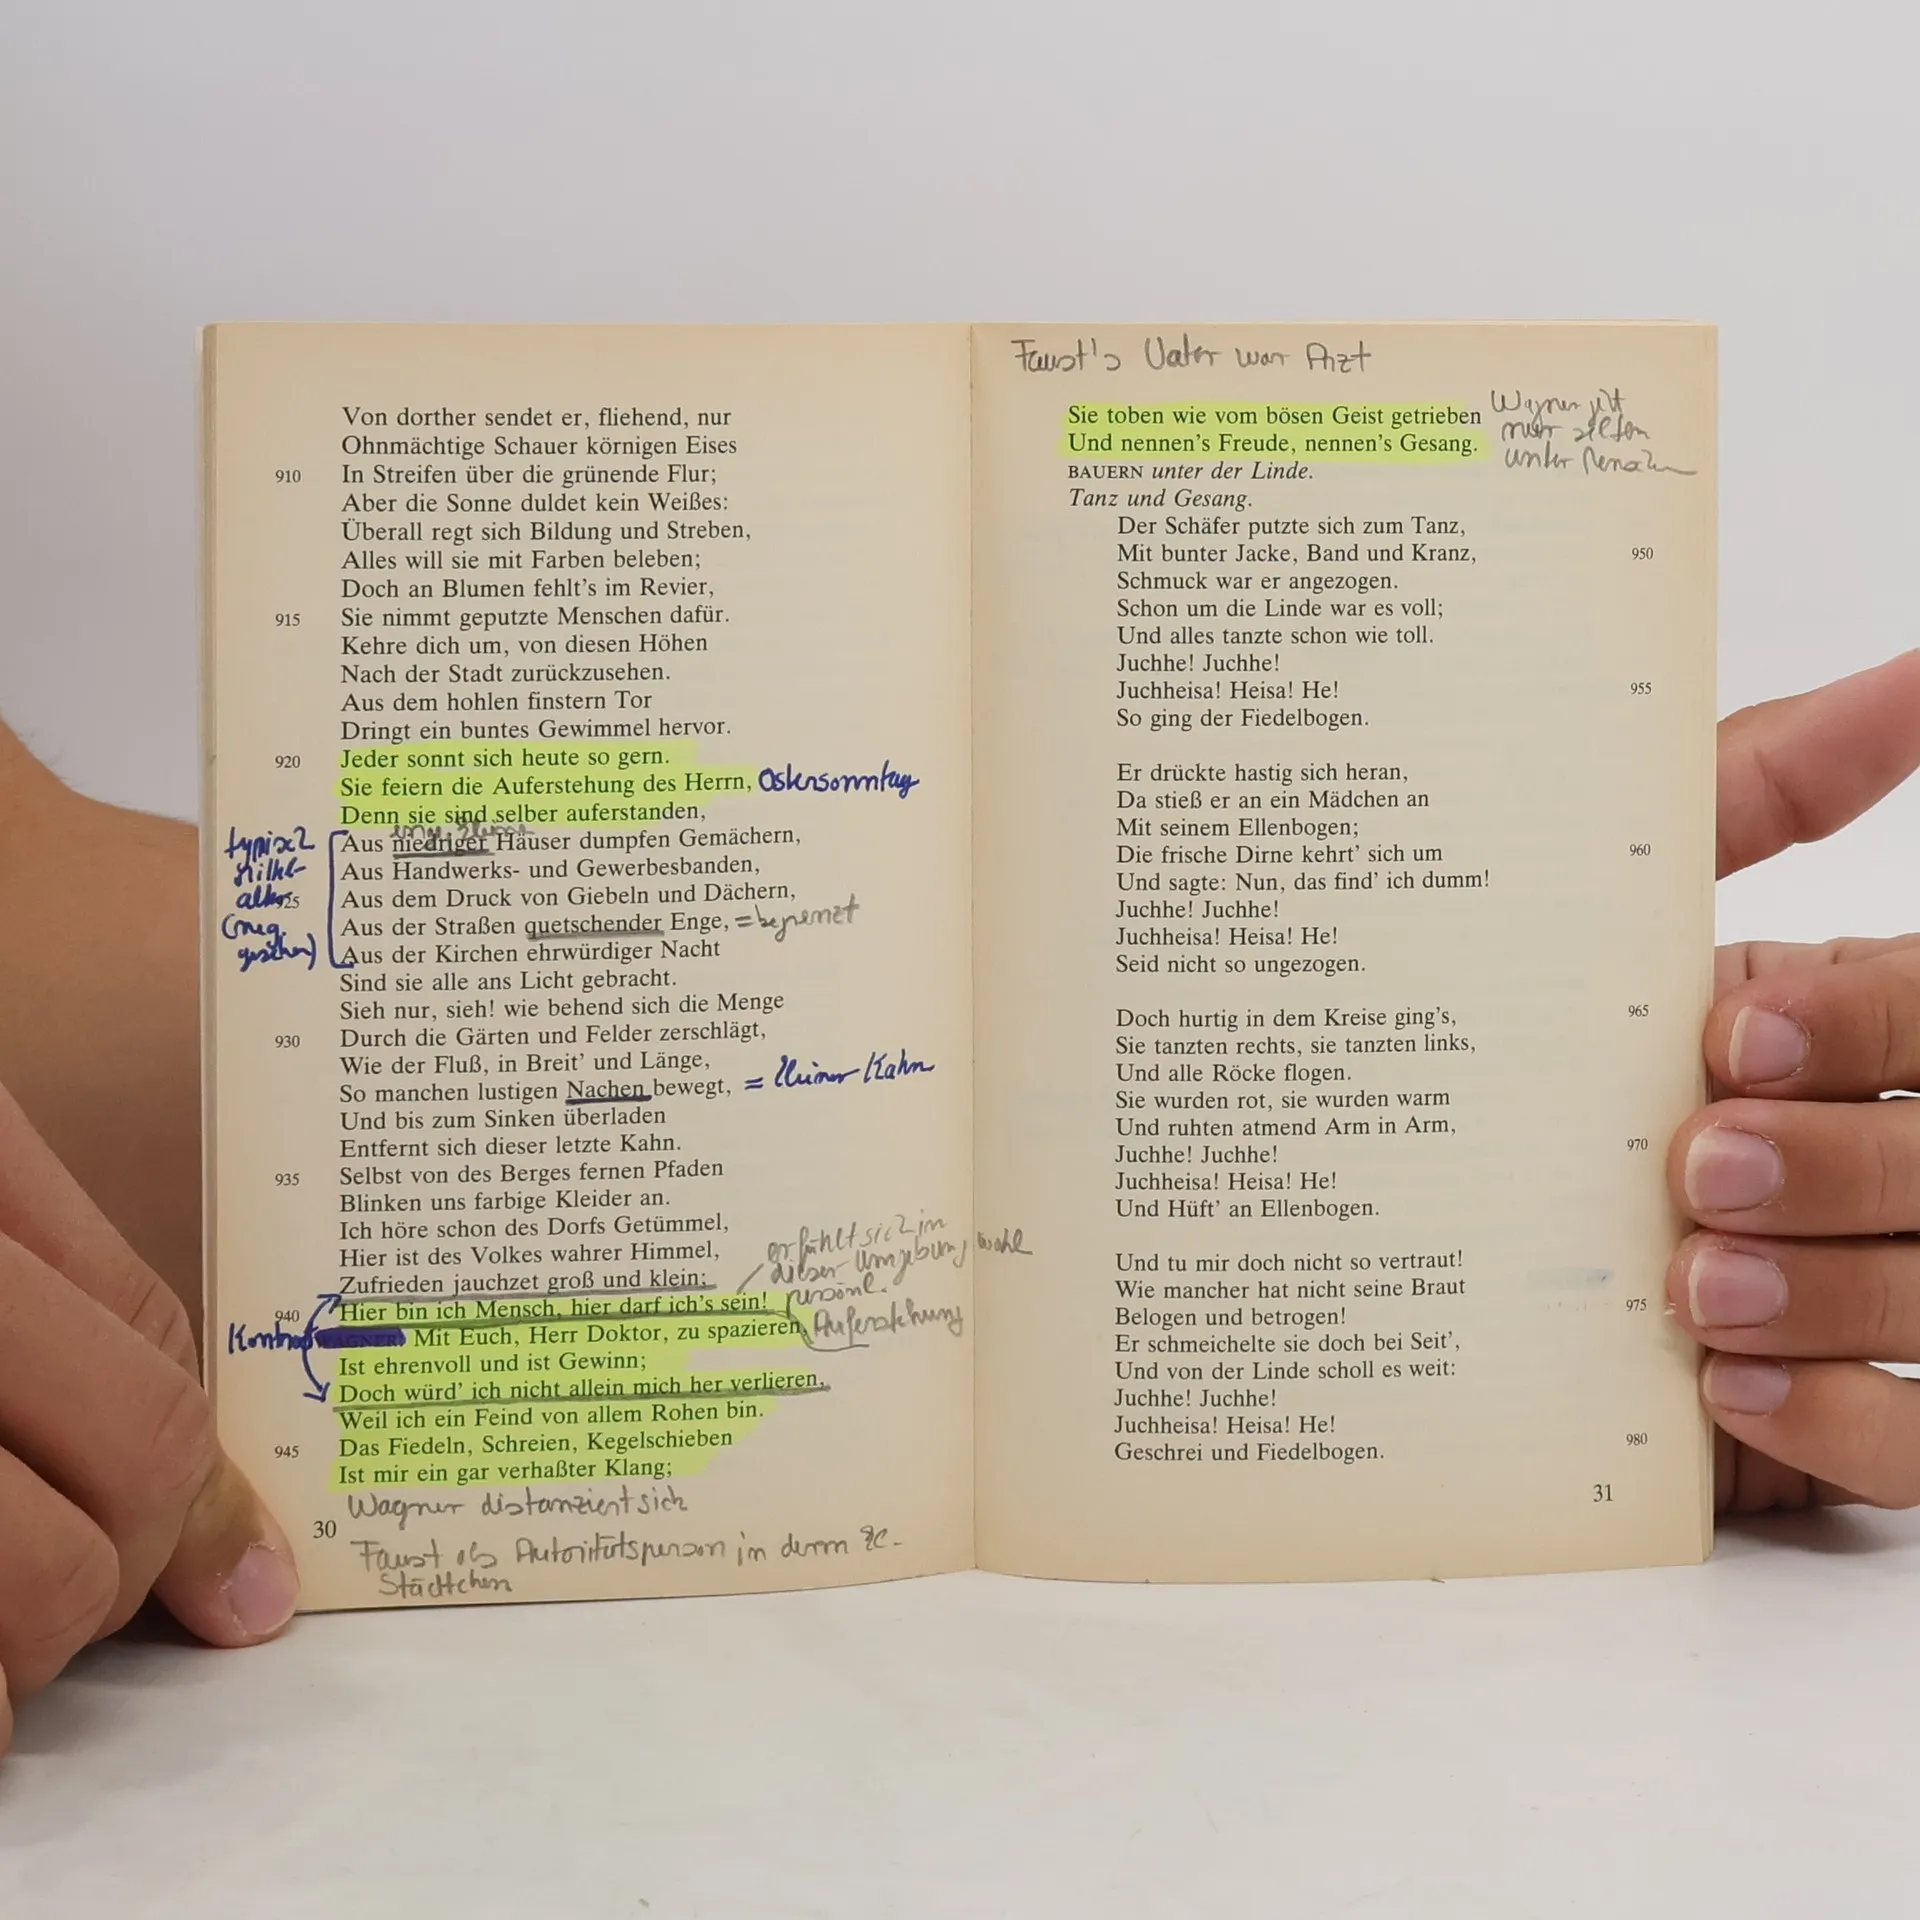 Von dorther sendet er, fliehend, nur
Ohnmächtige Schauer körnigen Eises
910 In Streifen über die grünende Flur;
Aber die Sonne duldet kein Weißes:
Überall regt sich Bildung und Streben,
Alles will sie mit Farben beleben;
Doch an Blumen fehlt's im Revier,
915 Sie nimmt geputzte Menschen dafür.
Kehre dich um, von diesen Höhen
Nach der Stadt zurückzusehen.
Aus dem hohlen finstern Tor
Dringt ein buntes Gewimmel hervor.
920 Jeder sonnt sich heute so gern.
Sie feiern die Auferstehung des Herrn, Ostersonntag
Denn sie sind selber auferstanden,
Aus niedriger Häuser dumpfen Gemächern,
Aus Handwerks- und Gewerbesbanden,
925 Aus dem Druck von Giebeln und Dächern,
Aus der Straßen quetschender Enge, = begrenzt
Aus der Kirchen ehrwürdiger Nacht
typisch
Mittel-
alter
(neg.
gesehen)
Sind sie alle ans Licht gebracht.
Sieh nur, sieh! wie behend sich die Menge
930 Durch die Gärten und Felder zerschlägt,
Wie der Fluß, in Breit' und Länge,
So manchen lustigen Nachen bewegt, = kleiner Kahn
Und bis zum Sinken überladen
Entfernt sich dieser letzte Kahn.
935 Selbst von des Berges fernen Pfaden
Blinken uns farbige Kleider an.
Ich höre schon des Dorfs Getümmel,
Hier ist des Volkes wahrer Himmel,
Zufrieden jauchzet groß und klein;
940 Hier bin ich Mensch, hier darf ich's sein!
er fühlt sich in
dieser Umgebung wohl
persönl.
Auferstehung
Kontrast WAGNER. Mit Euch, Herr Doktor, zu spazieren,
Ist ehrenvoll und ist Gewinn;
Doch würd' ich nicht allein mich her verlieren,
Weil ich ein Feind von allem Rohen bin.
945 Das Fiedeln, Schreien, Kegelschieben
Ist mir ein gar verhaßter Klang;
Wagner distanziert sich
30
Faust als Autoritätsperson in
Städtchen
Faust's Vater war Arzt
Sie toben wie vom bösen Geist getrieben
Und nennen's Freude, nennen's Gesang.
Wagner
nur selten
unter Menschen
BAUERN unter der Linde.
Tanz und Gesang.
Der Schäfer putzte sich zum Tanz,
Mit bunter Jacke, Band und Kranz, 950
Schmuck war er angezogen.
Schon um die Linde war es voll;
Und alles tanzte schon wie toll.
Juchhe! Juchhe!
Juchheisa! Heisa! He! 955
So ging der Fiedelbogen.
Er drückte hastig sich heran,
Da stieß er an ein Mädchen an
Mit seinem Ellenbogen;
Die frische Dirne kehrt' sich um 960
Und sagte: Nun, das find' ich dumm!
Juchhe! Juchhe!
Juchheisa! Heisa! He!
Seid nicht so ungezogen.
Doch hurtig in dem Kreise ging's, 965
Sie tanzten rechts, sie tanzten links,
Und alle Röcke flogen.
Sie wurden rot, sie wurden warm
Und ruhten atmend Arm in Arm,
Juchhe! Juchhe! 970
Juchheisa! Heisa! He!
Und Hüft' an Ellenbogen.
Und tu mir doch nicht so vertraut!
Wie mancher hat nicht seine Braut
Belogen und betrogen! 975
Er schmeichelte sie doch bei Seit',
Und von der Linde scholl es weit:
Juchhe! Juchhe!
Juchheisa! Heisa! He!
Geschrei und Fiedelbogen. 980
31